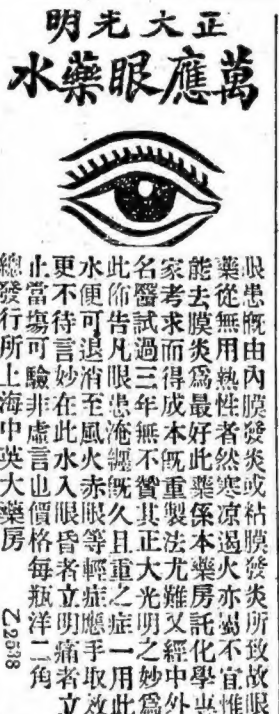 正大光明
萬應眼藥水
眼患旣由內膜發炎或粘膜發炎所致故眼
藥從無用熱性者然寒凉遏火亦屬不宜惟
能去膜炎爲最好此藥係本藥房託化學専
家考求而得成本旣重製法尤難又經中外
名醫試過三年無不贊其正大光明之妙爲
此佈告凡眼患淹纏旣久且重之症一用此
水便可退消至風火赤眼等輕症應手取效
更不待言妙在此水入眼昏者立明痛者立
止當塲可驗非虛言也價格每瓶洋二角
總發行所上海中英大藥房
乙2538